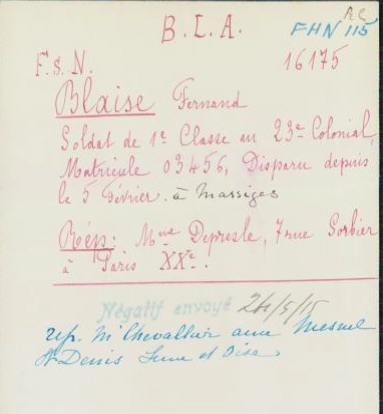 RC
B.L.A.
FHN 115
F.s.N.
16175
Blaise Fernand
Soldat de 1e Classe au 23e Colonial,
Matricule 03456, Disparu depuis
le 5 février. à Massiges
Rép: Mme Depresle, 7 rue Sorbier
à Paris XXe.
Négatif envoyé 24/5/15
rep. Mr Chevallier Mesnel
St Denis Seine et Oise